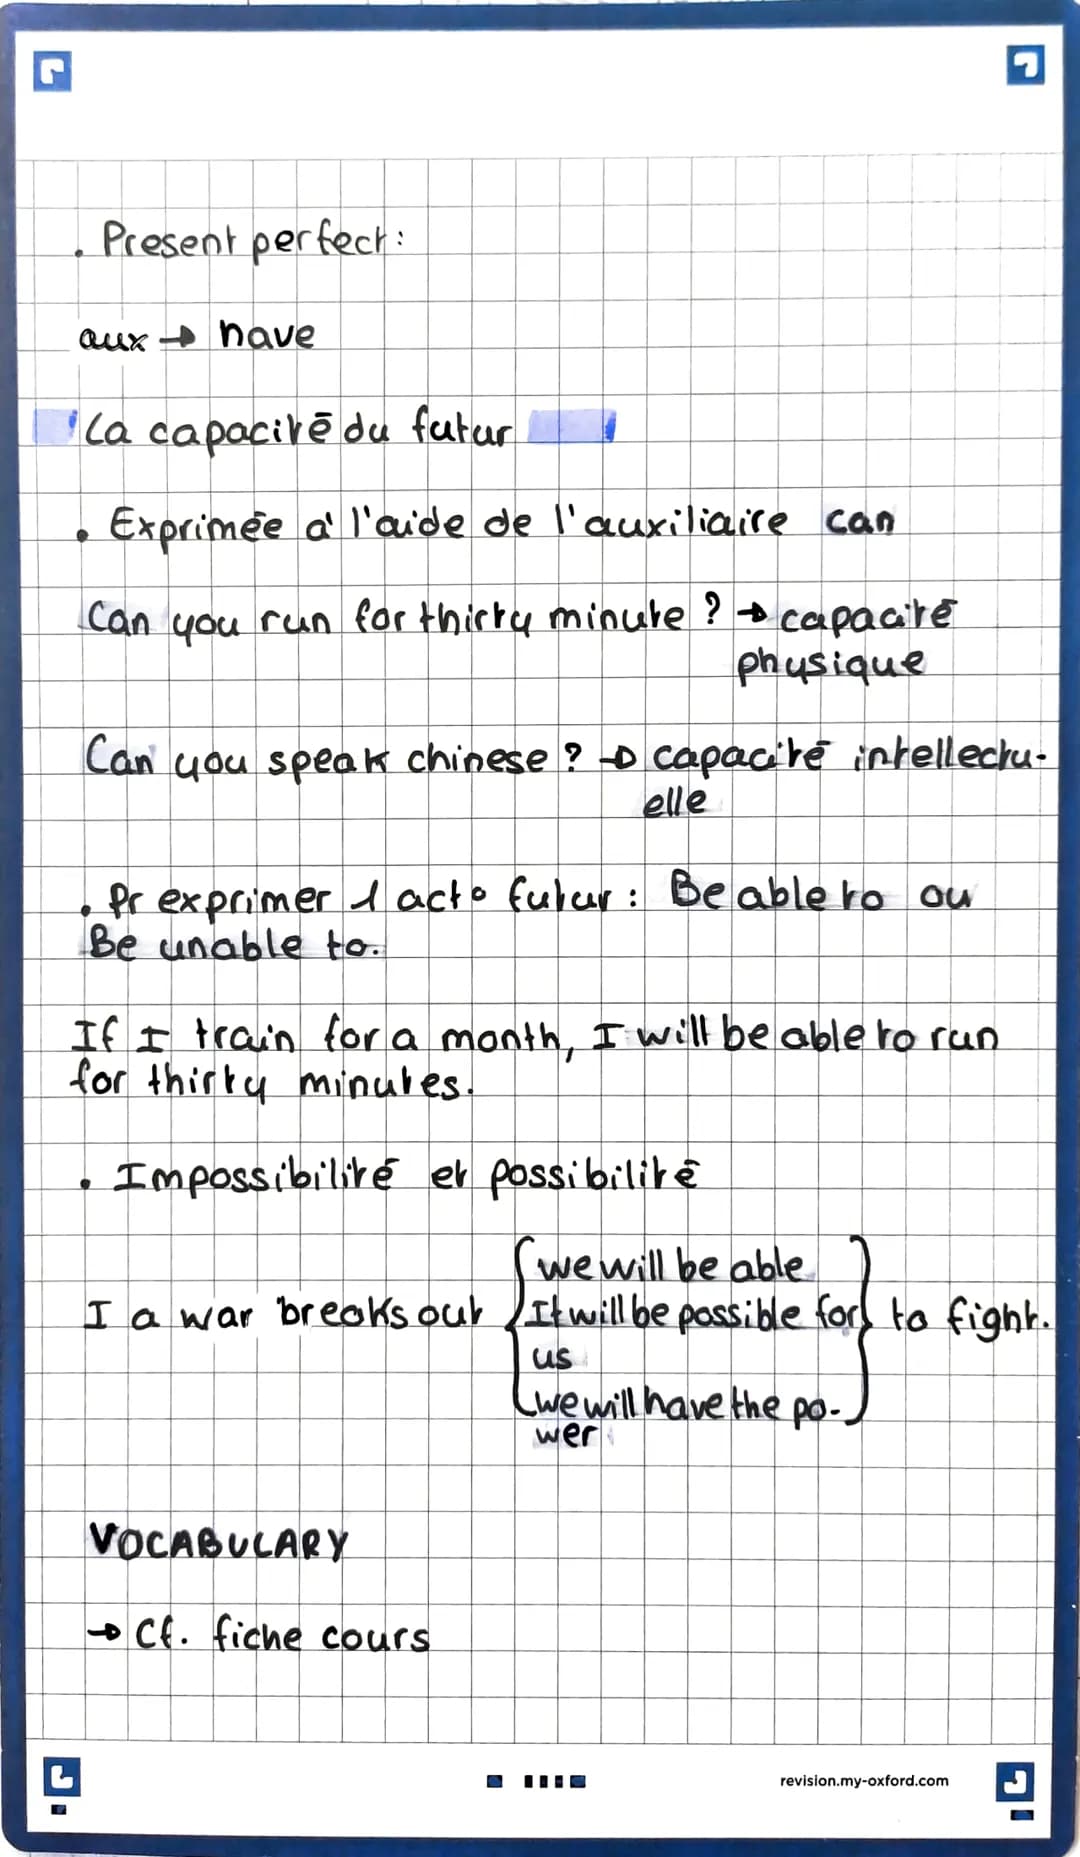 . Present perfect :
aux → have
La capacité du futur
. Exprimée à l'aide de l'auxiliaire can
Can you run for thirty minute ? → capacité
physique
Can you speak chinese ? → capacité intellectu-
elle
. Pr exprimer 1 act° futur : Be able to ou
Be unable to.
If I train for a month, I will be able to run
for thirty minutes.
. Impossibilité et possibilité
we will be able
I a war breaks out It will be possible for to fight.
us
we will have the po-
wer
VOCABULARY
→ Cf. fiche cours
revision.my-oxford.com